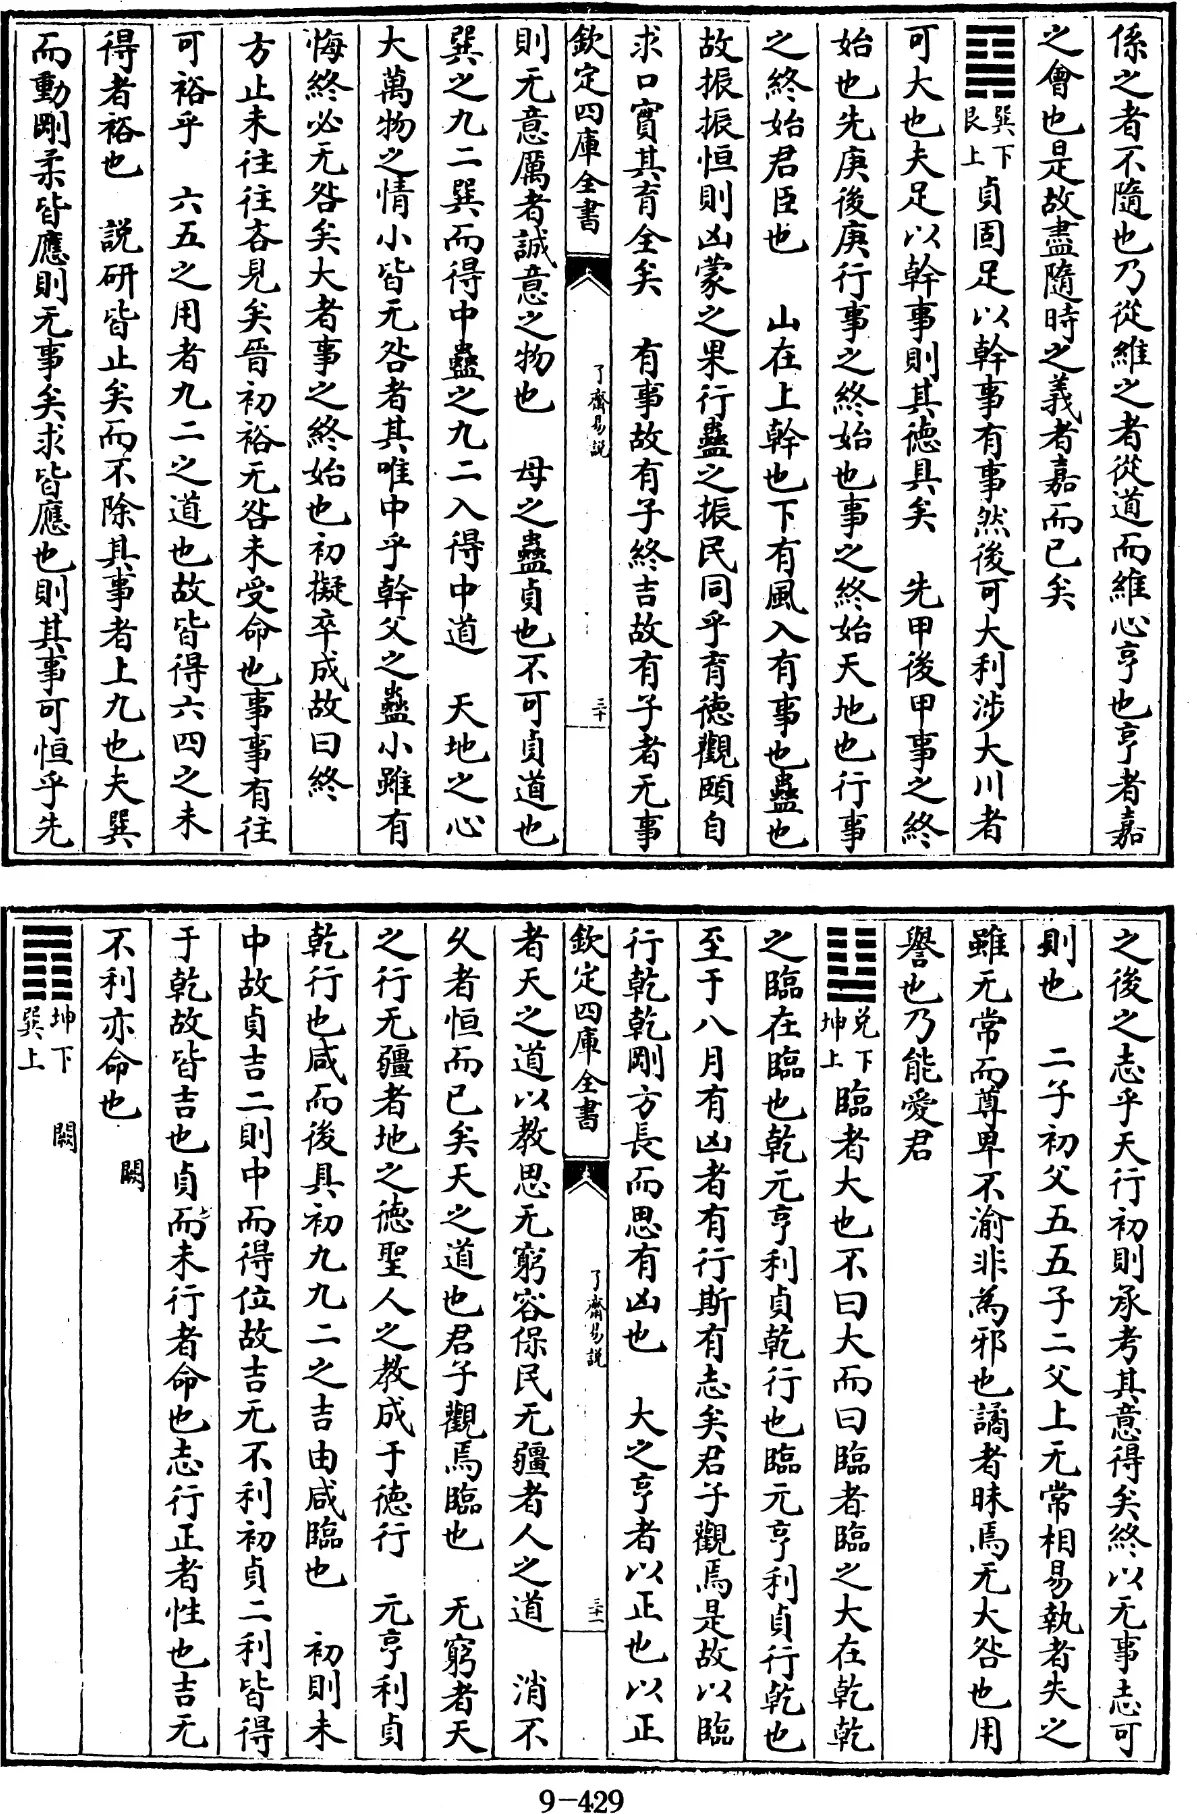 係之者不隨也乃從維之者從道而維心亨也亨者嘉
之會也是故盡隨時之義者嘉而已矣
䷑巽下艮上 貞固足以幹事有事然後可大利涉大川者
可大也夫足以幹事則其德具矣 先甲後甲事之終
始也先庚後庚行事之終始也事之終始天地也行事
之終始君臣也 山在上幹也下有風入有事也蠱也
故振振恒則凶蒙之果行蠱之振民同乎育德觀頤自
求口實其育全矣 有事故有子終吉故有子者无事
欽定四庫全書 了齋易說 三十
則无意厲者誠意之物也 母之蠱貞也不可貞道也
巽之九二巽而得中蠱之九二入得中道 天地之心
大萬物之情小皆无咎者其唯中乎幹父之蠱小雖有
悔終必无咎矣大者事之終始也初擬卒成故曰終
方止未往往吝見矣晉初裕无咎未受命也事事有往
可裕乎 六五之用者九二之道也故皆得六四之未
得者裕也 說研皆止矣而不除其事者上九也夫巽
而動剛柔皆應則无事矣求皆應也則其事可恒乎先
之後之志乎天行初則承考其意得矣終以无事志可
則也 二子初父五五子二父上无常相易執者失之
雖无常而尊卑不渝非為邪也譎者昧焉无大咎也用
譽也乃能愛君
䷒兌下坤上 臨者大也不曰大而曰臨者臨之大在乾乾
之臨在臨也乾元亨利貞乾行也臨元亨利貞行乾也
至于八月有凶者有行斯有志矣君子觀焉是故以臨
行乾乾剛方長而思有凶也 大之亨者以正也以正
欽定四庫全書 了齋易說 三十一
者天之道以教思无窮容保民无疆者人之道 消不
久者恒而已矣天之道也君子觀焉臨也 无窮者天
之行无疆者地之德聖人之教成于德行 元亨利貞
乾行也咸而後具初九九二之吉由咸臨也 初則未
中故貞吉二則中而得位故吉无不利初貞二利皆得
于乾故皆吉也貞而未行者命也志行正者性也吉无
不利亦命也 闕
䷓坤下巽上 闕
9-429